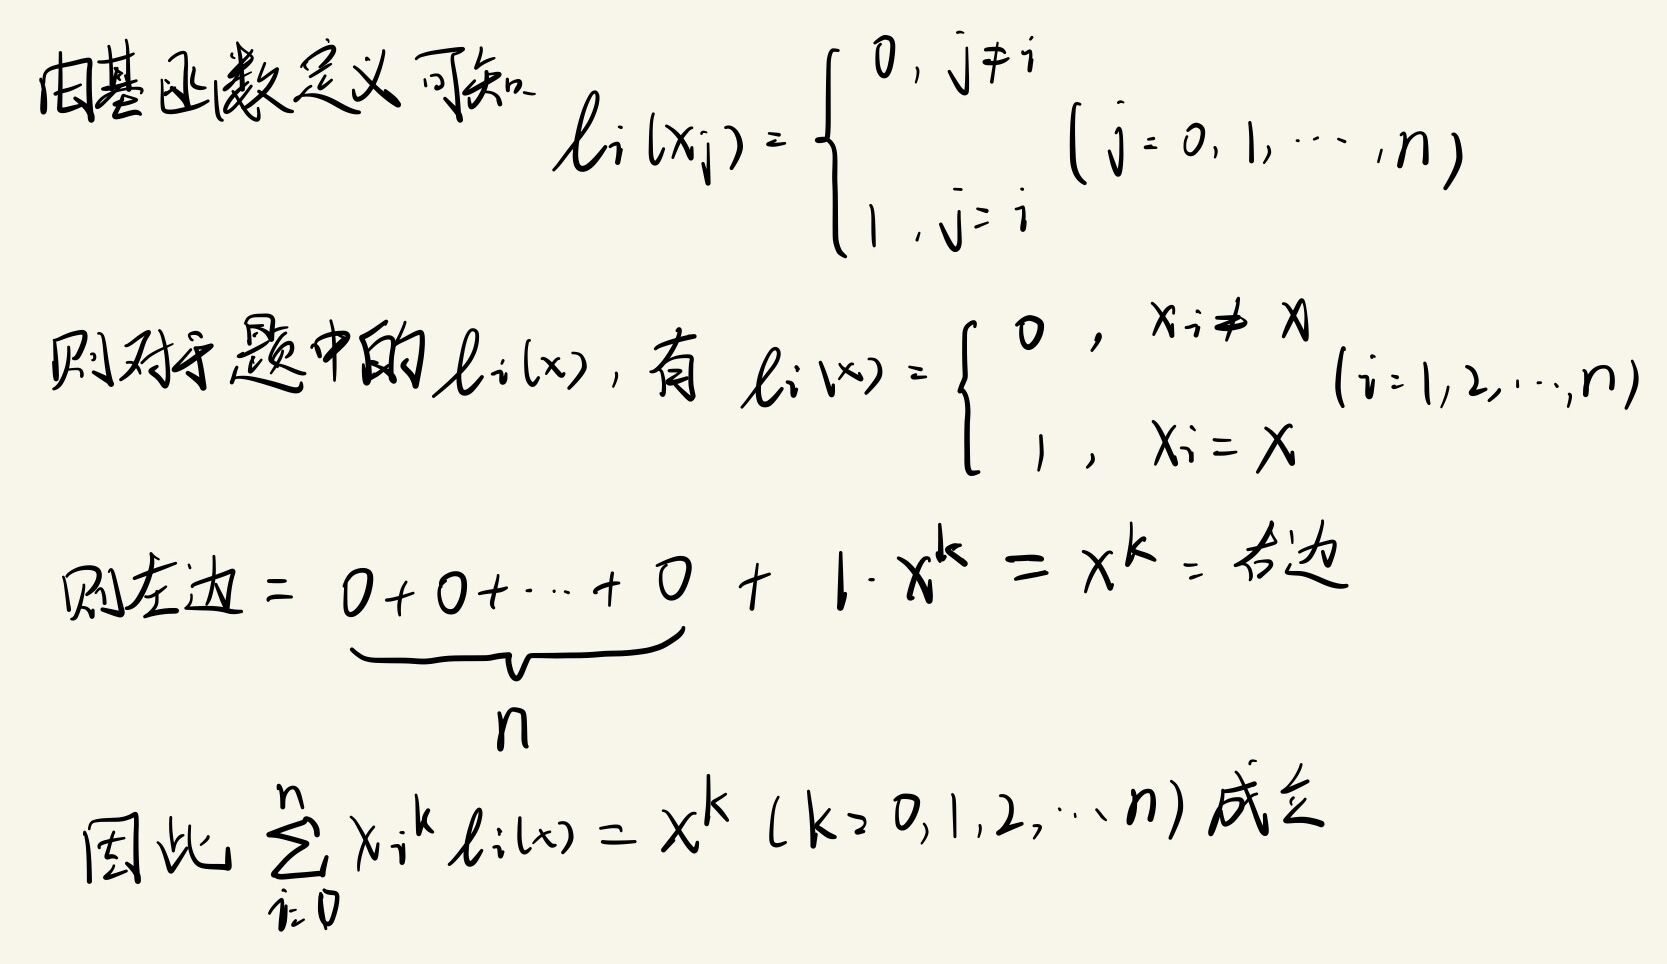 由基函数定义可知 lᵢ(xⱼ) = { 0, j≠i ; 1, j=i (j=0,1,⋯,n)
则对于题中的 lᵢ(x), 有 lᵢ(x) = { 0, xᵢ≠x ; 1, xᵢ=x (i=1,2,⋯,n)
则左边 = 0+0+⋯+0 + 1·x^k = x^k = 右边
n
因此 ∑_{i=0}^{n} xᵢ^k lᵢ(x) = x^k (k=0,1,2,⋯n) 成立